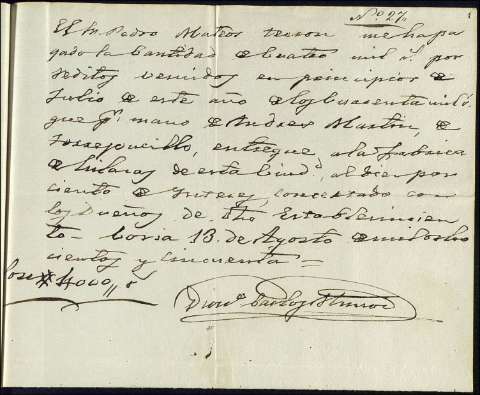 Nº. 27,,
El Sr. Pedro Mateos me ha pa
gado la Cantidad de Cuatro mil r.s por
reditos vencidos en principios de
Julio de este año de los Cuarenta mil r.s
que p.r mano de Andres Martin, de
Torrejoncillo, entregue a la fabrica
de hilaras de esta Ciud.d, al diez por
ciento de Interes, concertado con
los Dueños de dho Establecimien
to = Coria 13 de Agosto de mil ocho
cientos y cincuenta =
Son # 4000,, r.s